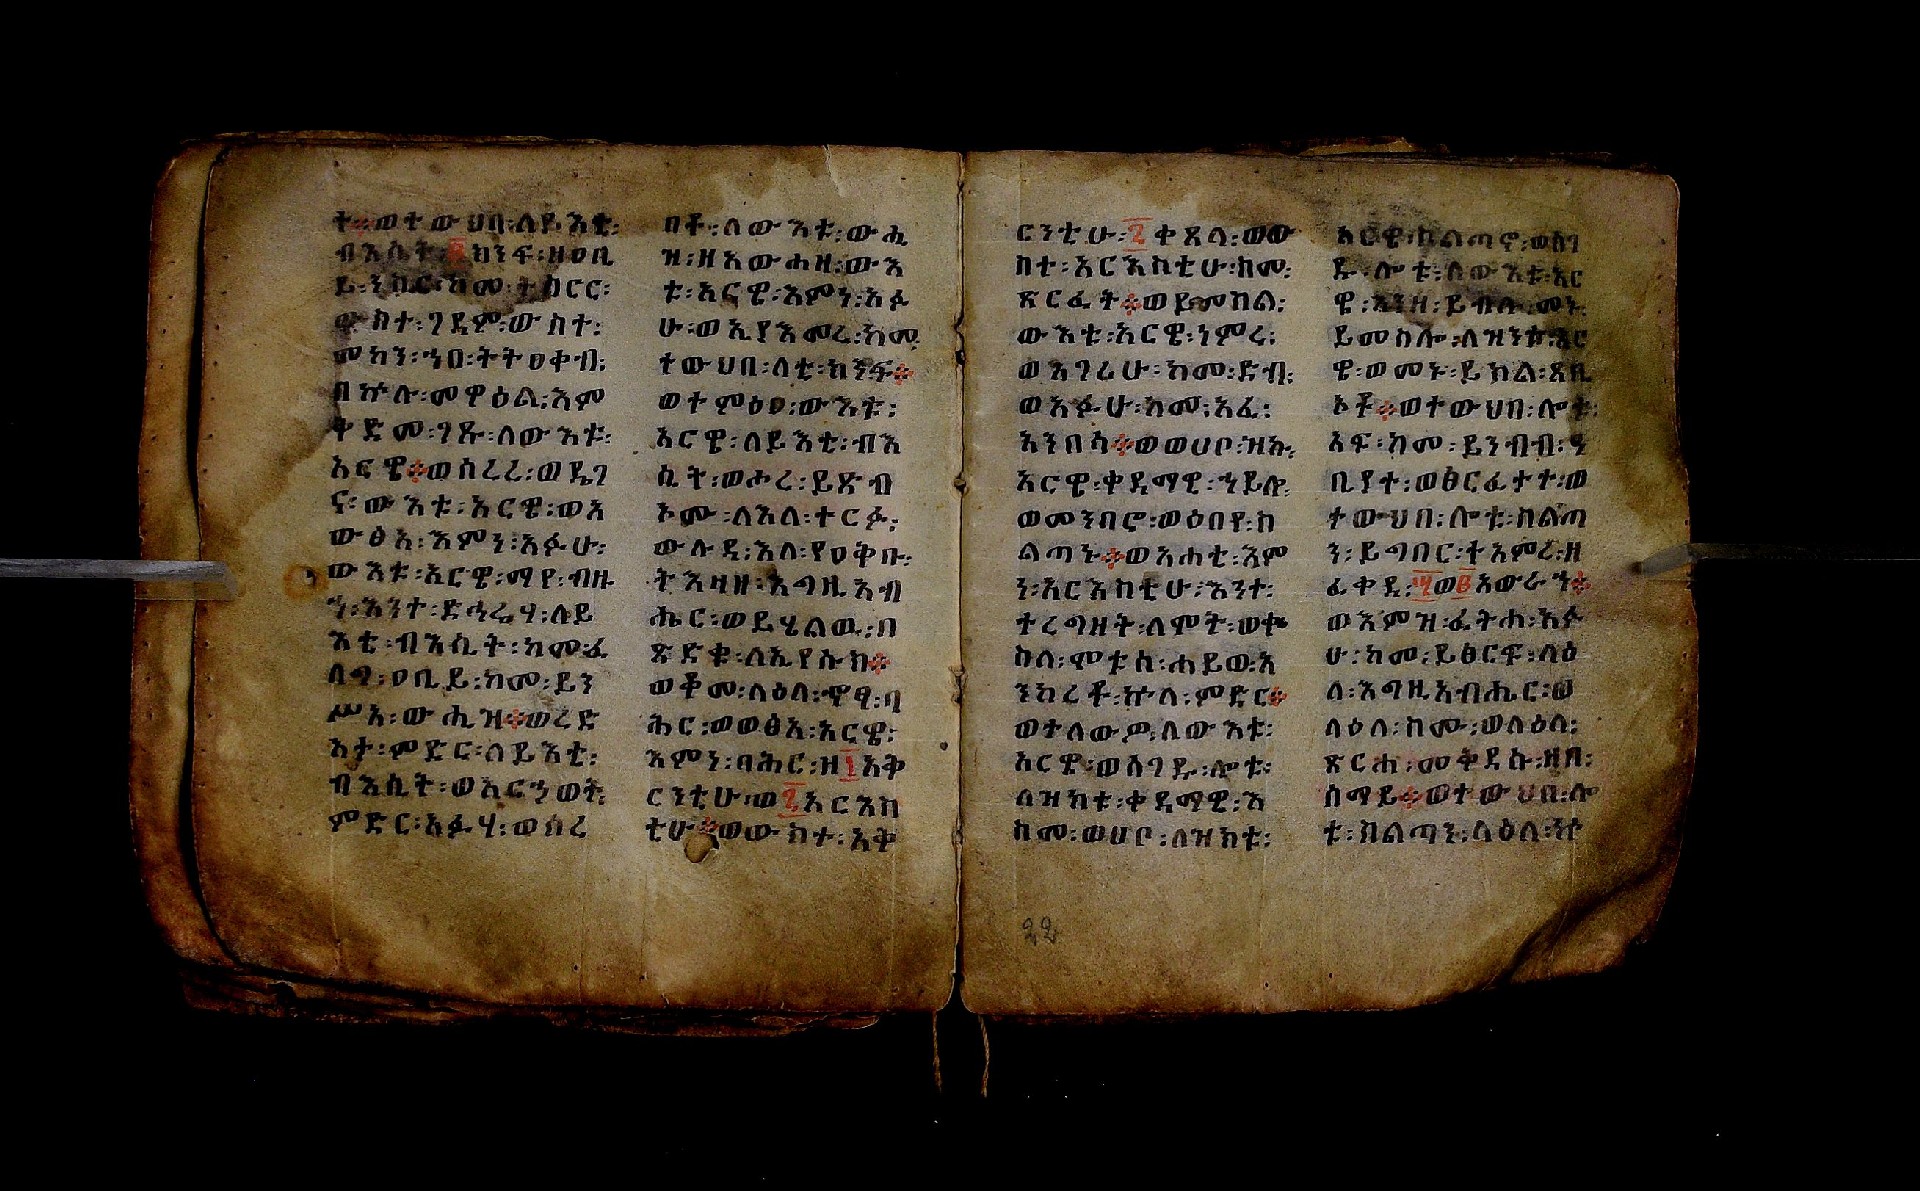 ት፡፡ወተውህበ፡ለይእቲ፡
ብእሲት፡፪ክንፍ፡ዘዐቢ
ይ፡ንስር፡ከመ፡ተሰርር፡
ውስተ፡ገዳም፡ውስተ፡
መካን፡ኀበ፡ትትዐቀብ፡
በኵሉ፡መዋዕል፡እም
ቅድመ፡ገጹ፡ለውእቱ፡
አርዌ፡፡ወሰረረ፡ወዴገ
ና፡ውእቱ፡አርዌ፡ወአ
ውፅአ፡እምነ፡አፉሁ፡
ውእቱ፡አርዌ፡ማየ፡ብዙ
ኀ፡እንተ፡ድኅሬሃ፡ለይ
እቲ፡ብእሲት፡ከመ፡ፈ
ለግ፡ዐቢይ፡ከመ፡ይን
ሥአ፡ውሒዝ፡፡ወረድ
አታ፡ምድር፡ለይእቲ፡
ብእሲት፡ወአርኀወት፡
ምድር፡አፉሃ፡ወሰረ
በቶ፡ለውእቱ፡ውሒ
ዝ፡ዘአውሐዘ፡ውእ
ቱ፡አርዌ፡እምነ፡አፉ
ሁ፡ወኢየአመረ፡ከመ
ተውህበ፡ለቲ፡ክንፍ፡፡
ወተምዕዐ፡ውእቱ፡
አርዌ፡ለይእቲ፡ብእ
ሲት፡ወሖረ፡ይጽብ
ኦሙ፡ለእለ፡ተርፉ፡
ውሉዳ፡እለ፡የዐቅቡ፡
ትእዛዘ፡እግዚአብ
ሔር፡ወይሄልዉ፡በ
ጽድቁ፡ለኢየሱስ፡፡
ወቆመ፡ለዕለ፡ኆፃ፡ባ
ሕር፡ወወፅአ፡አርዌ፡
እምነ፡ባሕር፡ዘ፲አቅ
ርንቲሁ፡ወ፯አርእስ
ቲሁ፡፡ወውስተ፡አቅ
ርንቲሁ፡፯ቀጸላ፡ወው
ስተ፡አርእስቲሁ፡ስመ፡
ጽርፈት፡፡ወይመስል፡
ውእቱ፡አርዌ፡ነምረ፡
ወእገሪሁ፡ከመ፡ድብ፡
ወአፉሁ፡ከመ፡አፈ፡
አንበሳ፡፡ወወሀቦ፡ዝኩ፡
አርዌ፡ቀዳማዊ፡ኀይሎ፡
ወመንበሮ፡ወዕበየ፡ስ
ልጣኑ፡፡ወአሐቲ፡እም
ነ፡አርእስቲሁ፡እንተ፡
ተረግዘት፡ለሞት፡ወቍ
ስለ፡ሞቱሰ፡ሐይወ፡አ
ንከረቶ፡ኵላ፡ምድር፡፡
ወተለውዎ፡ለውእቱ፡
አርዌ፡ወሰገዱ፡ሎቱ፡
ለዝክቱ፡ቀዳማዊ፡እ
ስመ፡ወሀቦ፡ለዝክቱ፡
አርዌ፡ስልጣኖ፡ወሰገ
ዱ፡ሎቱ፡ለውእቱ፡አር
ዌ፡እንዘ፡ይብሉ፡መኑ፡
ይመስሎ፡ለዝንቱ፡አር
ዌ፡ወመኑ፡ይክል፡ጸቢ
ኦቶ፡፡ወተውህበ፡ሎቱ፡
አፍ፡ከመ፡ይንብብ፡ዓ
ቢየተ፡ወፅርፈታተ፡ወ
ተውህበ፡ሎቱ፡ስልጣ
ን፡ይግበር፡ተአምረ፡ዘ
ፈቀደ፡፵ወ፪አውራኀ፡፡
ወእምዝ፡ፈትሐ፡አፉ
ሁ፡ከመ፡ይፅርፍ፡ላዕ
ለ፡እግዚአብሔር፡ወ
ላዕለ፡ስሙ፡ወላዕለ፡
ጽርሐ፡መቅደሱ፡ዘበ፡
ሰማይ፡፡ወተውህበ፡ሎ
ቱ፡ስልጣን፡ላዕለ፡ኵ
22